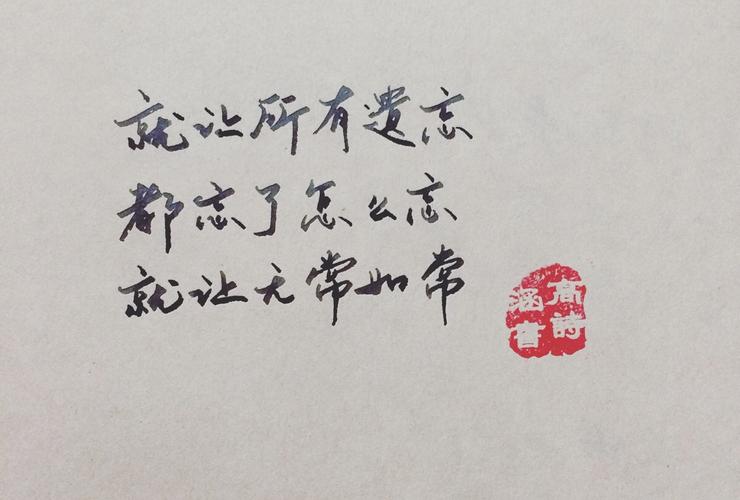 就让所有遗忘
都忘了怎么忘
就让无常如常
高诗
涵书